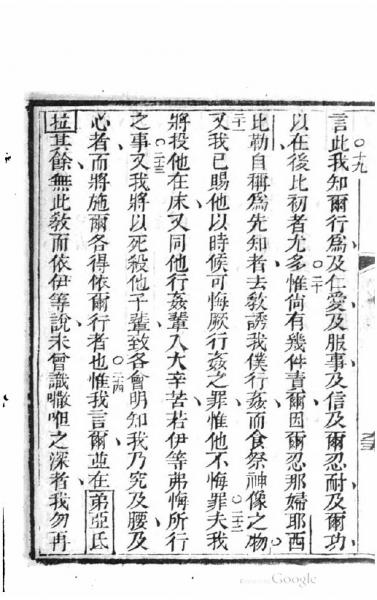 言此我知爾行爲及仁愛及服事及信及爾忍耐及爾功
以在後比初者尤多惟尚有幾件責爾因爾忍那婦耶西
比勒自稱爲先知者去敎誘我僕行姦而食祭神像之物
又我已賜他以時候可悔厥行姦之罪惟他不悔罪夫我
將投他在床又同他行姦輩入大辛苦若伊等弗悔所行
之事又我將以死殺他子輩致各會明知我乃究及腰及
心者而將施爾各得依爾行者也惟我言爾並在弟亞氐
拉其餘無此敎而依伊等說未曾識㘔呾之深者我勿再
○十九
○二十
二十一
○二十二
○二十三
○二十四
Google